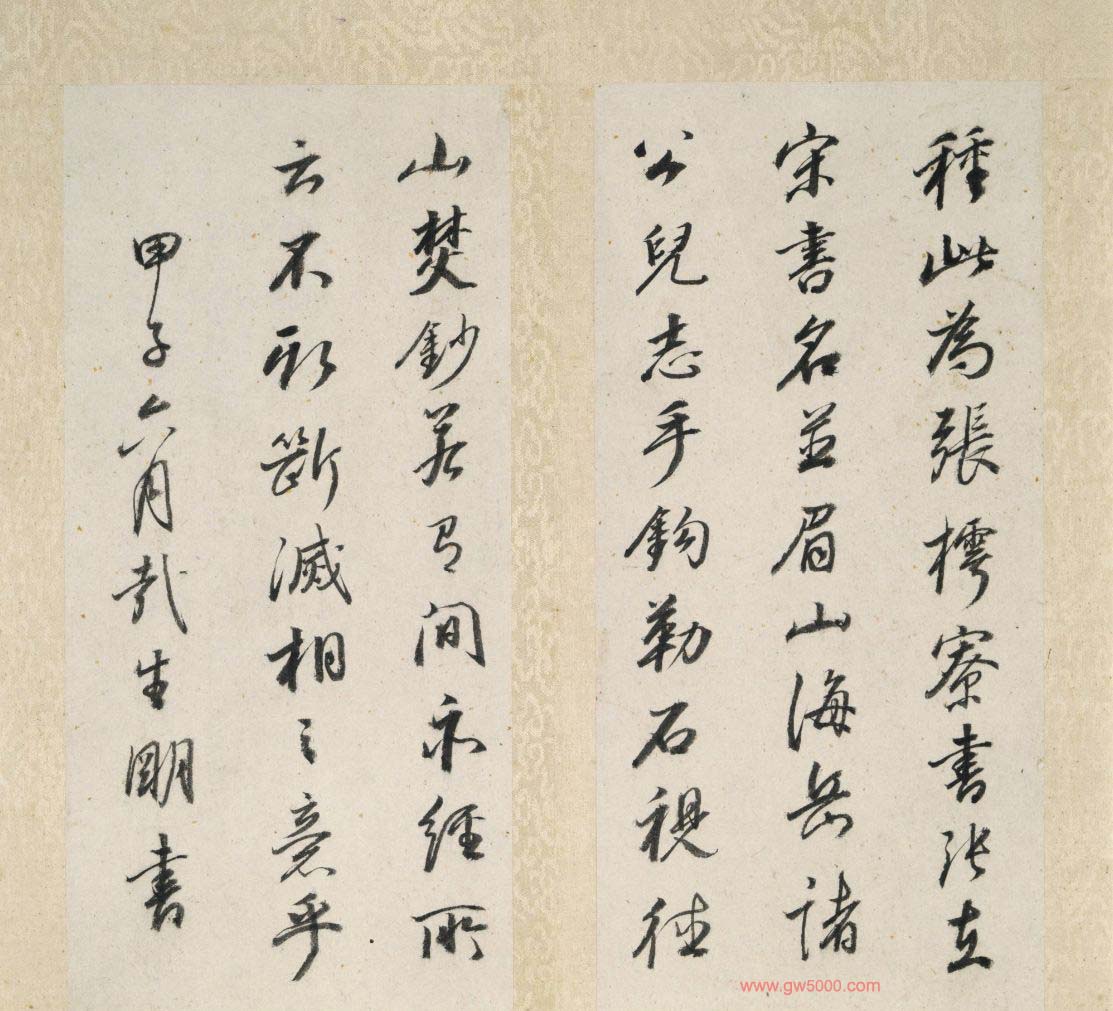 種此為張樗寮書張在
宋書名並眉山海岳諸
公兒志手鈎勒石視德
山焚鈔若有間亦經所
云不取斷滅相之意乎
甲子六月哉生明書
www.gw5000.com